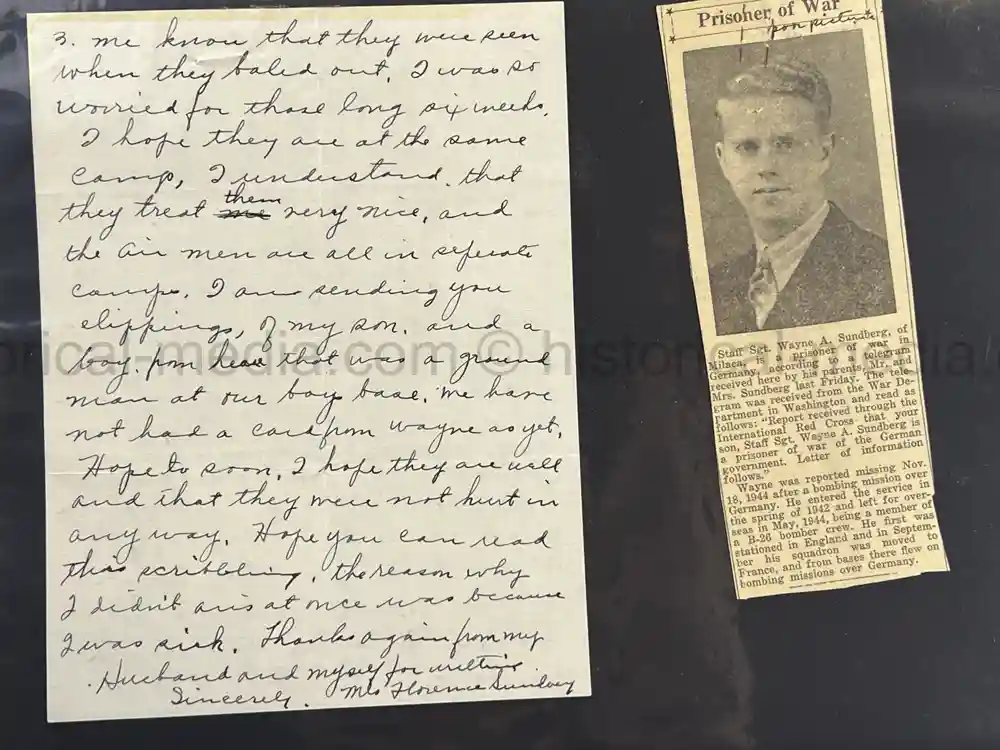 3. me know that they were seen
when they baled out. I was so
worried for those long six weeks.
I hope they are at the same
camp, I understand that
they treat me them very nice, and
the air men are all in seperate
camps. I am sending you
clippings, of my son, and a
boy from here that was a ground
man at our boys base. We have
not had a card from Wayne as yet,
Hope to soon. I hope they are well
and that they were not hurt in
any way. Hope you can read
this scribbling, the reason why
I didn't ans at once was because
I was sick. Thanks again from my
Husband and myself for writing.
Sincerely, Mrs Florence Sundberg
Prisoner of War
poor picture
Staff Sgt. Wayne A. Sundberg, of
Milaca, is a prisoner of war in
Germany, according to a telegram
received here by his parents, Mr. and
Mrs. Sundberg last Friday. The tele-
gram was received from the War De-
partment in Washington and read as
follows: "Report received through the
International Red Cross that your
son, Staff Sgt. Wayne A. Sundberg is
a prisoner of war of the German
government. Letter of information
follows."
Wayne was reported missing Nov.
18, 1944 after a bombing mission over
Germany. He entered the service in
the spring of 1942 and left for over-
seas in May, 1944, being a member of
a B-26 bomber crew. He first was
stationed in England and in Septem-
ber his squadron was moved to
France, and from bases there flew on
bombing missions over Germany.
orical-media.com © historical-media.